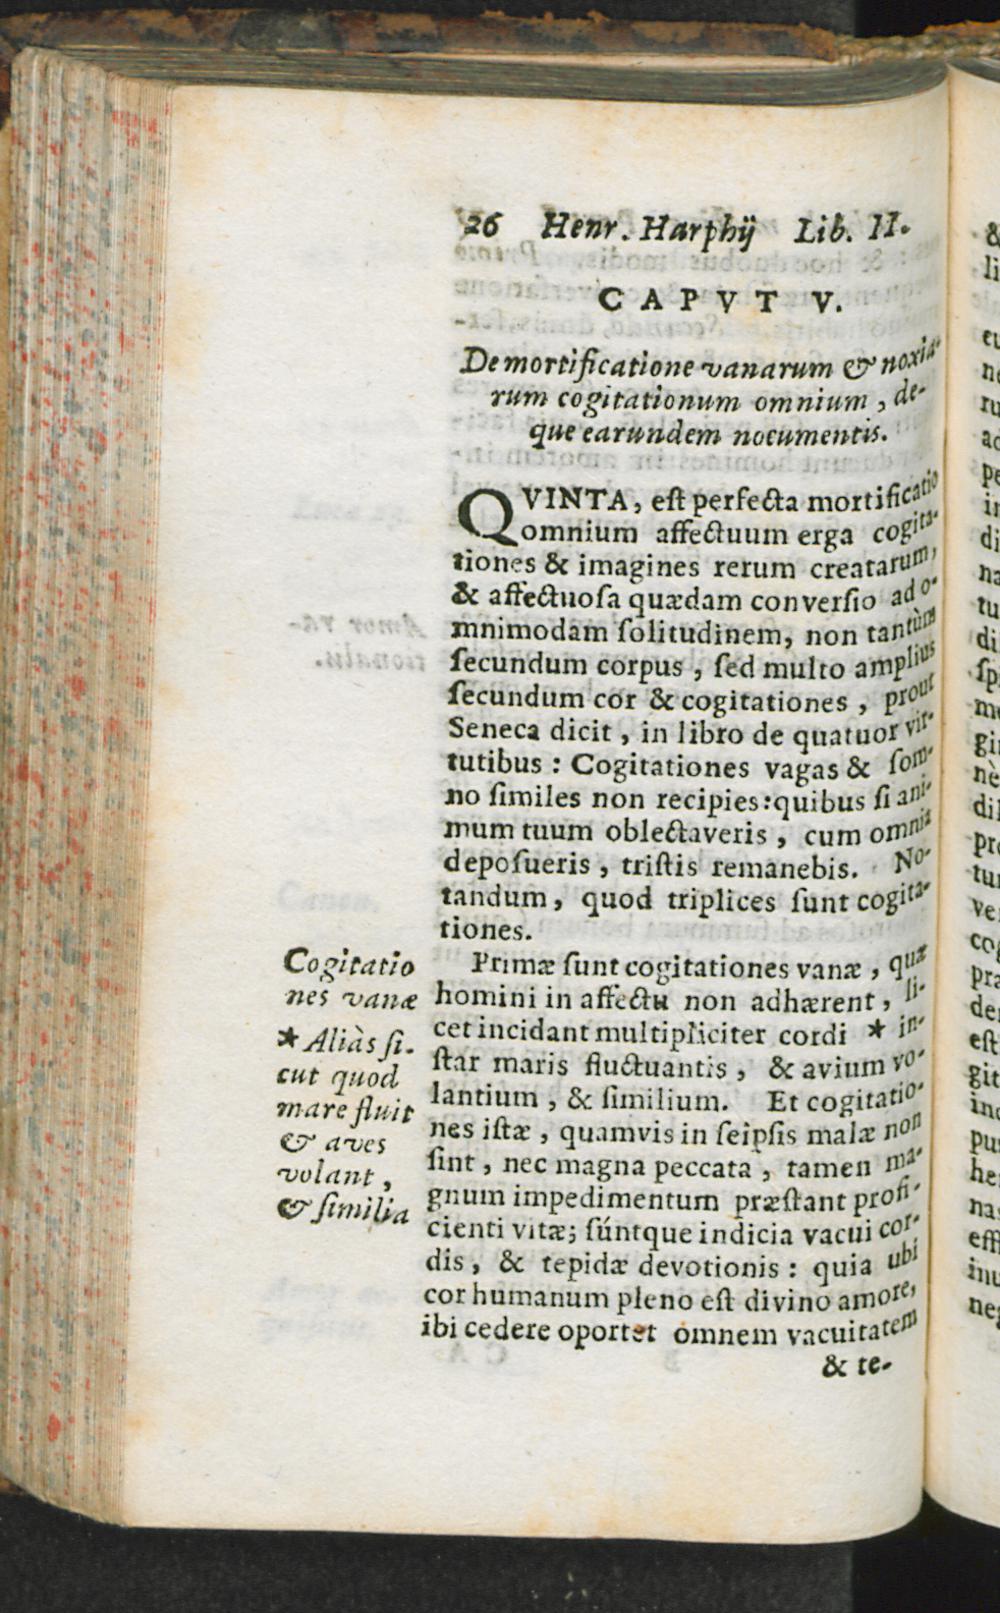 26 Henr. Harphij Lib. II.
CAPVT V.
De mortificatione vanarum & noxia-
rum cogitationum omnium, de-
que earundem nocumentis.
QVINTA, est perfecta mortificatio
omnium affectuum erga cogita-
tiones & imagines rerum creatarum,
& affectuosa quædam conversio ad o-
mnimodam solitudinem, non tantùm
secundum corpus, sed multo amplius
secundum cor & cogitationes, prout
Seneca dicit, in libro de quatuor vir-
tutibus: Cogitationes vagas & som-
no similes non recipies: quibus si ani-
mum tuum oblectaveris, cum omnia
deposueris, tristis remanebis. No-
tandum, quod triplices sunt cogita-
tiones.
Primæ sunt cogitationes vanæ, quæ
homini in affectu non adhærent, li-
cet incidant multipliciter cordi * in-
star maris fluctuantis, & avium vo-
lantium, & similium. Et cogitatio-
nes istæ, quamvis in seipsis malæ non
sint, nec magna peccata, tamen ma-
gnum impedimentum præstant profi-
cienti vitæ; súntque indicia vacui cor-
dis, & tepidæ devotionis: quia ubi
cor humanum pleno est divino amore,
ibi cedere oportet omnem vacuitatem
& te-
Cogitatio
nes vanæ
* Aliàs si-
cut quod
mare fluit
& aves
volant,
& similia